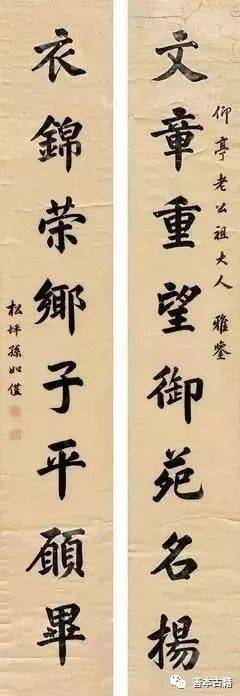 仰亭老公祖大人 雅鑒
文章重望御苑名揚
衣錦荣鄉子平願畢
松坪孫如僅
善本古籍